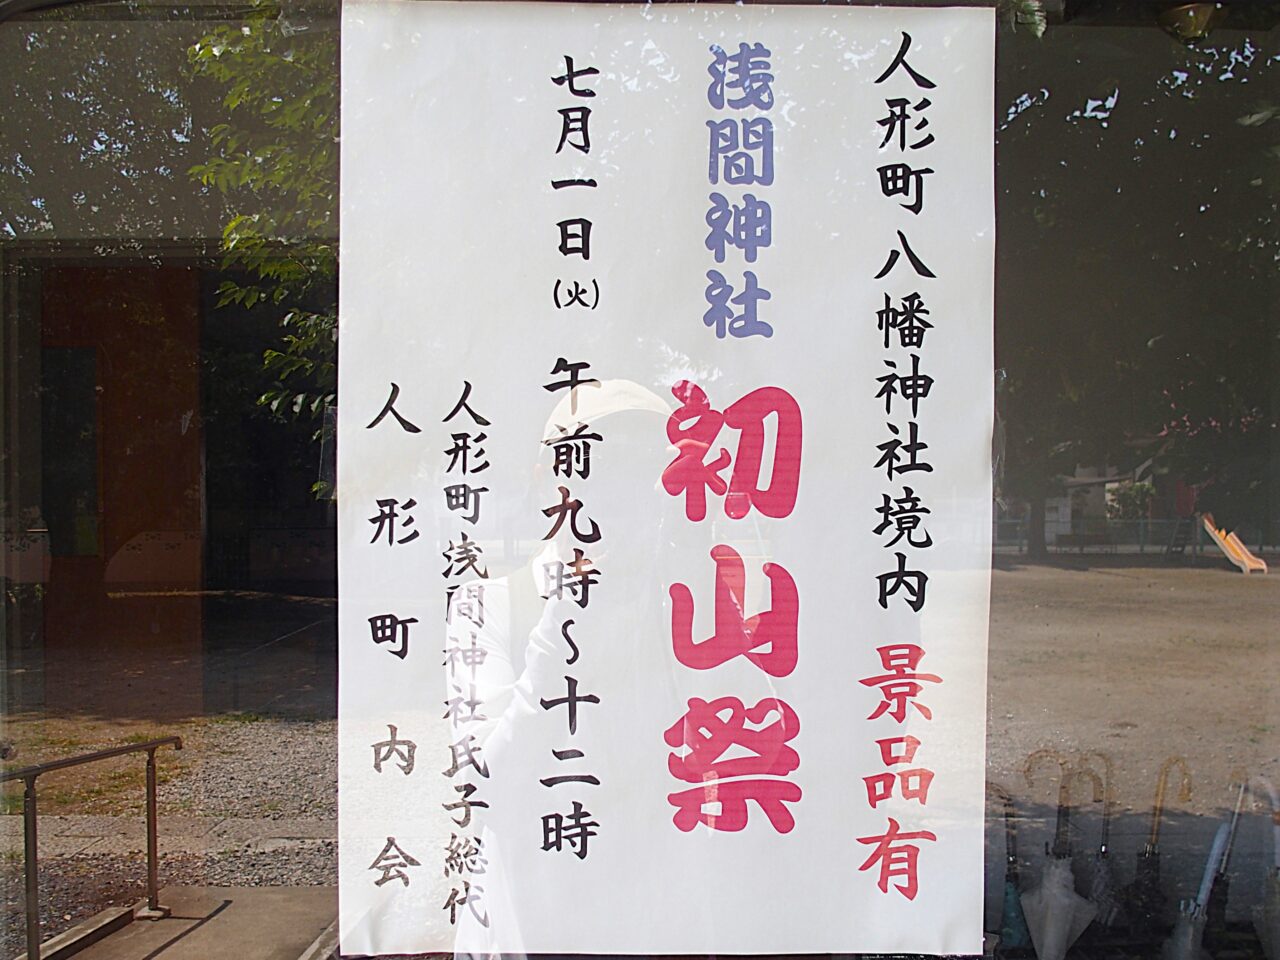 人形町八幡神社境内 景品有
浅間神社 初山祭
七月一日(火) 午前九時〜十二時
人形町浅間神社氏子総代
人形町内会